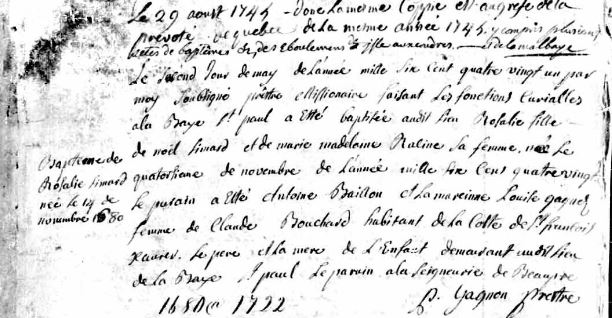 Le 29 aoust 1745 - dont la mesme Copye est au grefe de la
prevoté de quebec de la mesme année 1745. y compris plusieurs
actes de baptêmes de, des eboulemens & isle aux coudres. — & de la malbaye
Le second Jour de may de L'année mille six cent quatre vingt un par
moy Soubsigné prêstre Missionaire faisant Les fonctions Curialles
a la Baye St paul a Etté baptisée audit lieu Rosalie fille
de noël Simard et de marie madelaine Racine sa femme, née Le
quatorsieme de novembre de L'année mille six Cens quatre vingt
Le parain a Etté Antoine Baillon et La mareinne Louise gagné
femme de Claude Bouchard habitant de La Coste de St francois
xavier. Le pere et La mere de L'Enfant demeurant audit Lieu
de La Baye St paul Le parain a la seigneurie de Beaupré
Bapteme de
Rosalie Simard
née le 14 de
novembre 1680
1680 a 1722
p. Gagnon prestre